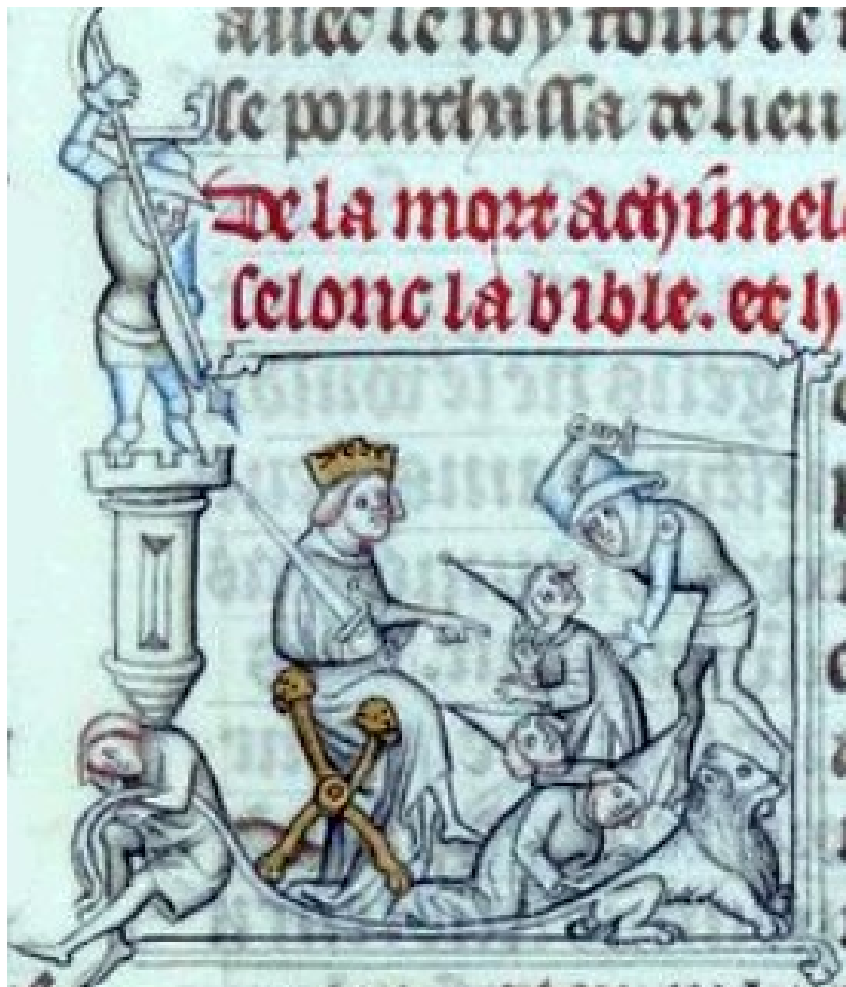 auec le roy tout le
se pourchassa de lieu
De la mort achimel
selonc la bible. et h